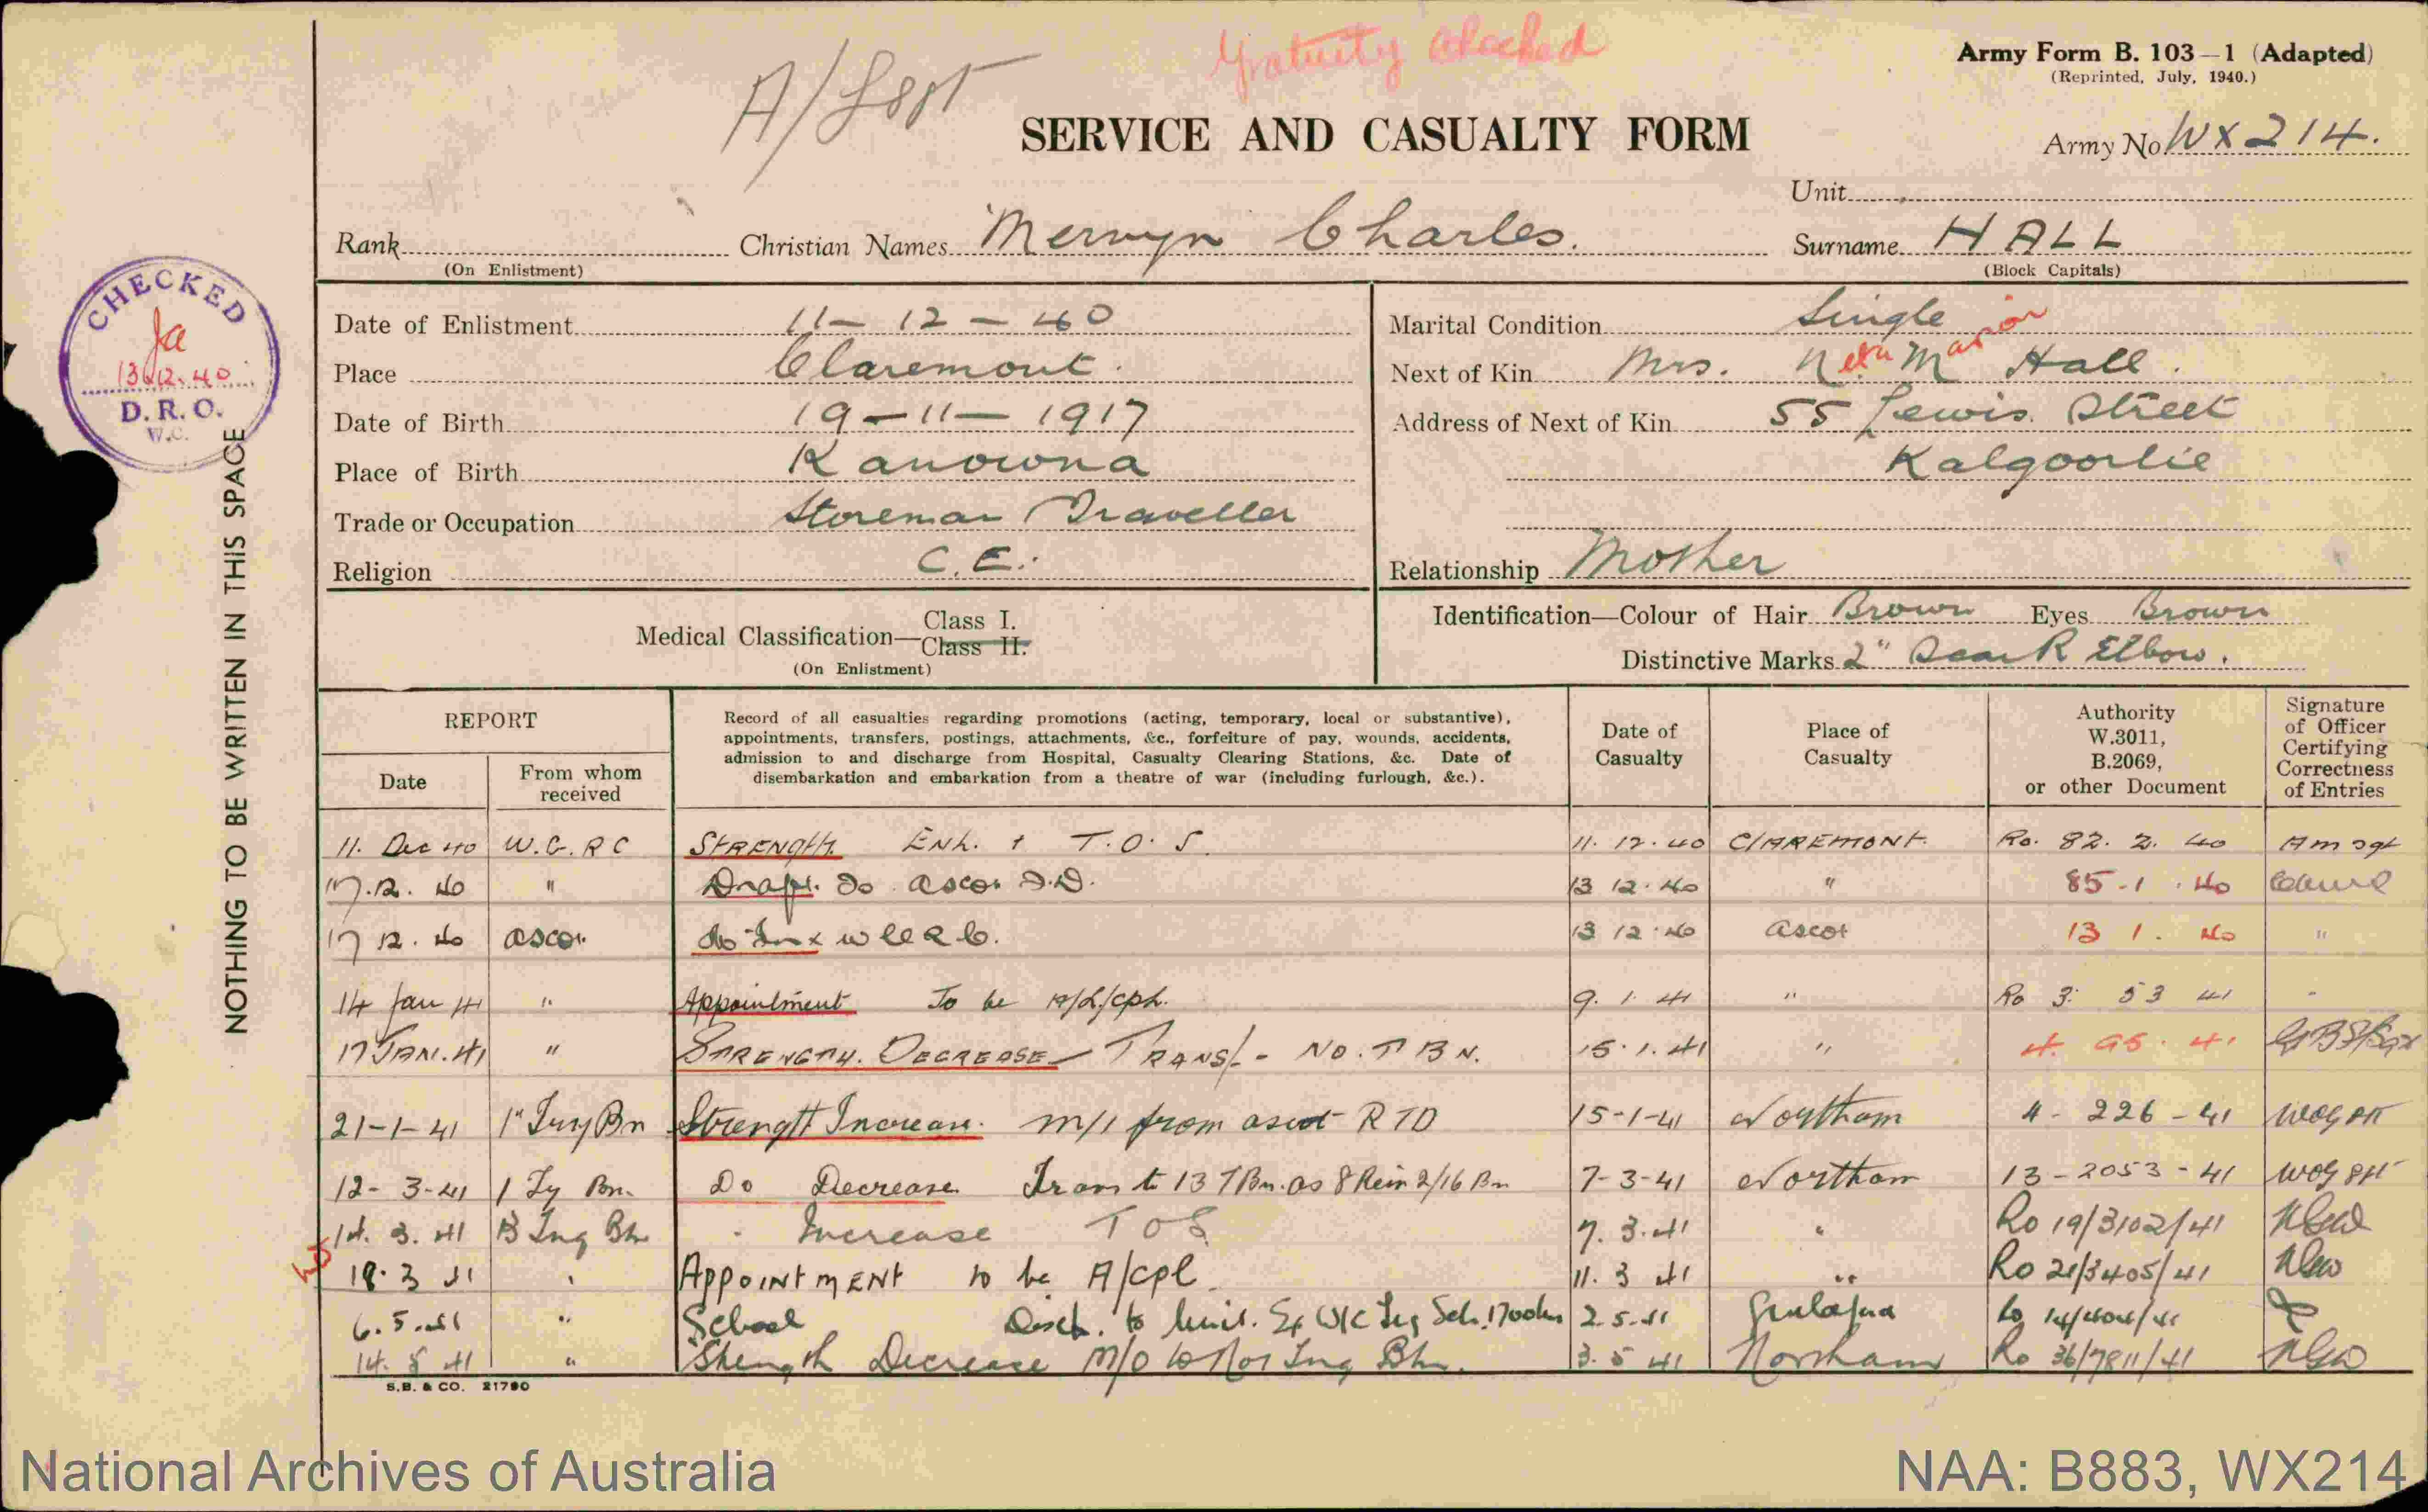 Gratuity Checked
Army Form B. 103—1 (Adapted)
(Reprinted, July, 1940.)
SERVICE AND CASUALTY FORM
Army No. WX214.
Unit
Rank
Christian Names Mervyn Charles.
Surname HALL
(On Enlistment)
(Block Capitals)
CHECKED
13.12.40
D.R.O.
W.C.
NOTHING TO BE WRITTEN IN THIS SPACE
Date of Enlistment 11-12-40
Place Claremont.
Date of Birth 19-11-1917
Place of Birth Kanowna
Trade or Occupation Storeman Traveller
Religion C.E.
Marital Condition Single
Next of Kin Mrs. Hall.
Address of Next of Kin 55 Lewis Street
Kalgoorlie
Relationship Mother
Medical Classification—Class I.
Class II.
(On Enlistment)
Identification—Colour of Hair Brown Eyes Brown
Distinctive Marks 2" Scar R Elbow.
REPORT
Date
From whom received
Record of all casualties regarding promotions (acting, temporary, local or substantive),
appointments, transfers, postings, attachments, &c., forfeiture of pay, wounds, accidents,
admission to and discharge from Hospital, Casualty Clearing Stations, &c. Date of
disembarkation and embarkation from a theatre of war (including furlough, &c.).
Date of Casualty
Place of Casualty
Authority W.3011, B.2069, or other Document
Signature of Officer Certifying Correctness of Entries
11. Dec 40 W.C.R.C STRENGTH. Enl. + T.O.S. 11.12.40 CLAREMONT. Ro. 82.2.40
17.12.40 " 13 12.40 " 85.1.40
17 12.40 Ascot 13 12.40 Ascot 13 1. 40 "
14 Jan 41 " Appointment To be A/L/Cpl. 9.1.41 " Ro 3. 53 41
17 JAN.41 " STRENGTH. DECREASE — TRANS/- NO. T BN. 15.1.41 " 4. 95. 41
21-1-41 Strength Increase. M/I from Ascot RTD 15-1-41 Northam 4-226-41
12-3-41 Do Decrease Trans to 13 T Bn. as 8 Rein 2/16 Bn 7-3-41 Northam 13-2053-41
14.3.41 Increase TOS 7.3.41 " Ro 19/3102/41
18.3.41 APPOINTMENT to be A/Cpl 11.3.41 " Ro 21/3405/41
6.5.41 " School 2.5.41
14.5.41 " Strength Decrease M/O 3.5.41 Northam Ro 36/7811/41
S.B. & CO. 21790
National Archives of Australia
NAA: B883, WX214